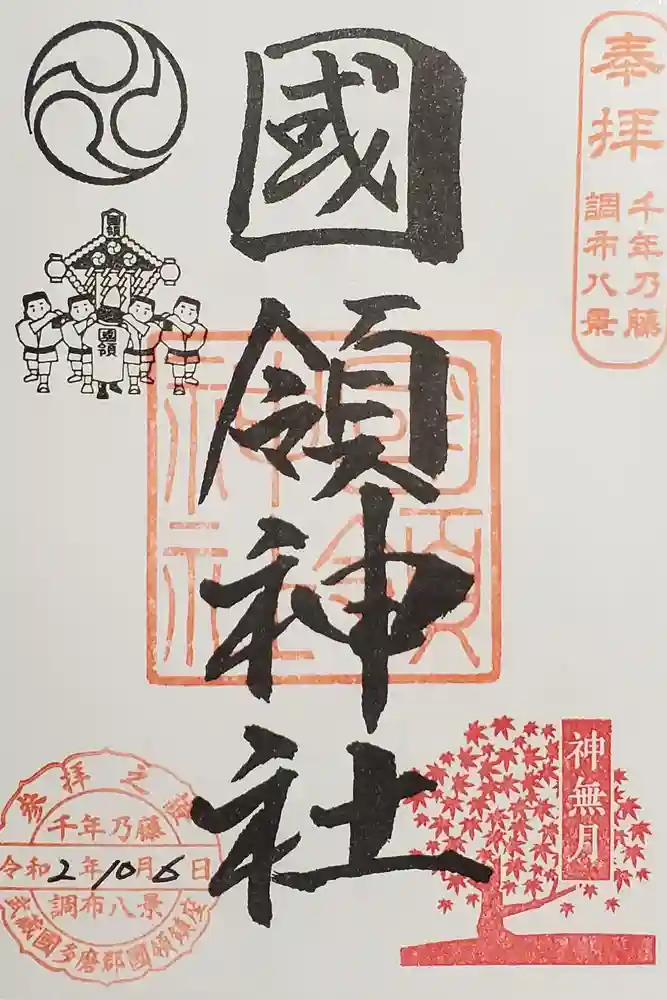 奉拝
千年乃藤
調布八景
國領神社
國領
國領
國領神社
神無月
参拝之証
千年乃藤
令和2年10月6日
調布八景
武蔵國多磨郡國領鎮座